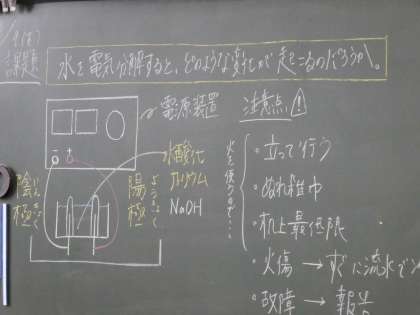 課題
水を電気分解すると、どのような変化が起こるのだろうか。
電源装置
- +
水酸化
ナトリウム
NaOH
陰極
いんきょく
陽極
ようきょく
注意点!
火を使うので…
・立って行う
・ぬれ雑巾
・机上最低限
・火傷→すぐに流水で
・故障→報告